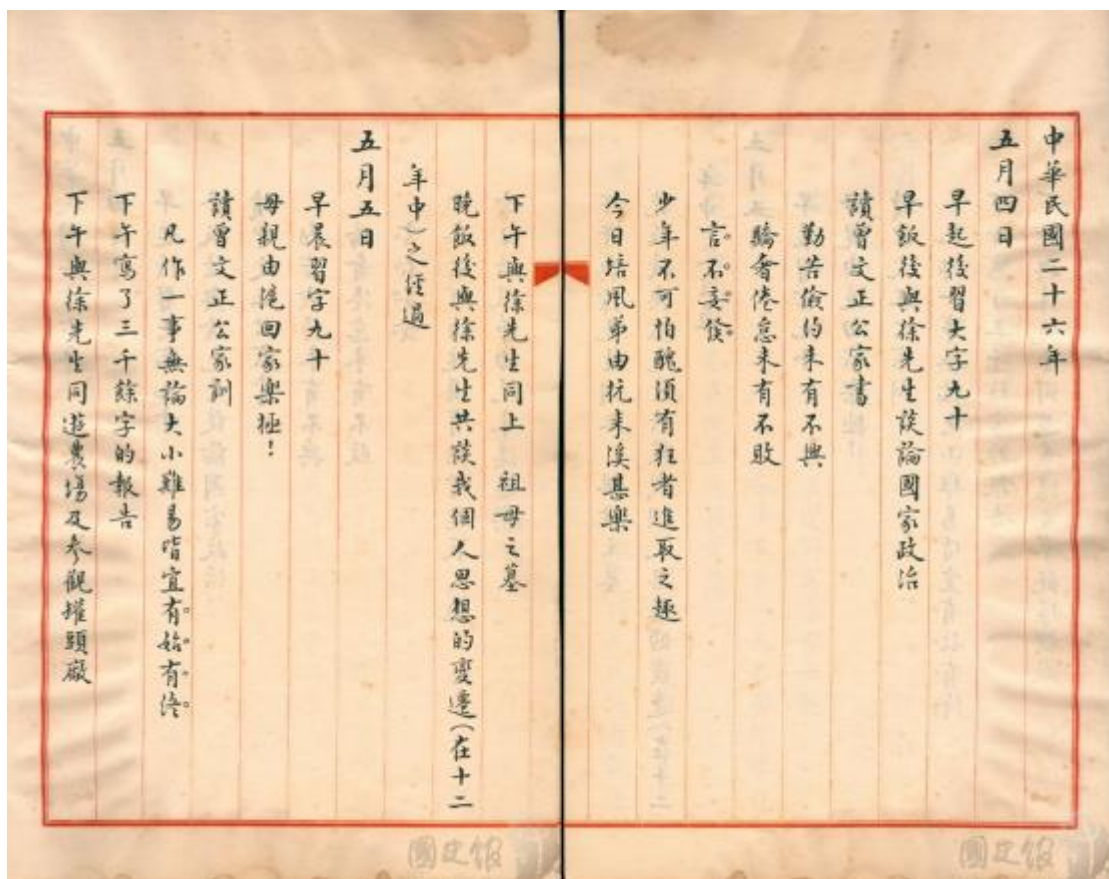 中華民國二十六年
五月四日
早起後習大字九十
早飯後與徐先生談論國家政治
讀曾文正公家書
勤苦儉約未有不興
驕奢倦怠未有不敗
言不妄發
少年不可怕醜須有狂者進取之趣
今日培風弟由杭來溪甚樂
下午與徐先生同上 祖母之墓
晚飯後與徐先生共談我個人思想的變遷(在十二
年中)之經過
五月五日
早晨習字九十
母親由滬回家樂極!
讀曾文正公家訓
凡作一事無論大小難易皆宜有始有終
下午寫了三千餘字的報告
下午與徐先生同遊農場及參觀罐頭廠
國史館
國史館